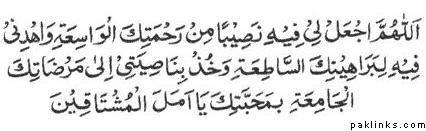 اَللّٰهُمَّ اجْعَلْ لِيْ فِيْهِ نَصِيْبًا مِنْ رَحْمَتِكَ الْوَاسِعَةِ وَاهْدِنِيْ
فِيْهِ لِبَرَاهِيْنِكَ السَّاطِعَةِ وَخُذْ بِنَاصِيَتِيْ اِلٰى مَرْضَاتِكَ
الْجَامِعَةِ بِمَحَبَّتِكَ يَا اَمَلَ الْمُشْتَاقِيْنَ
paklinks.com